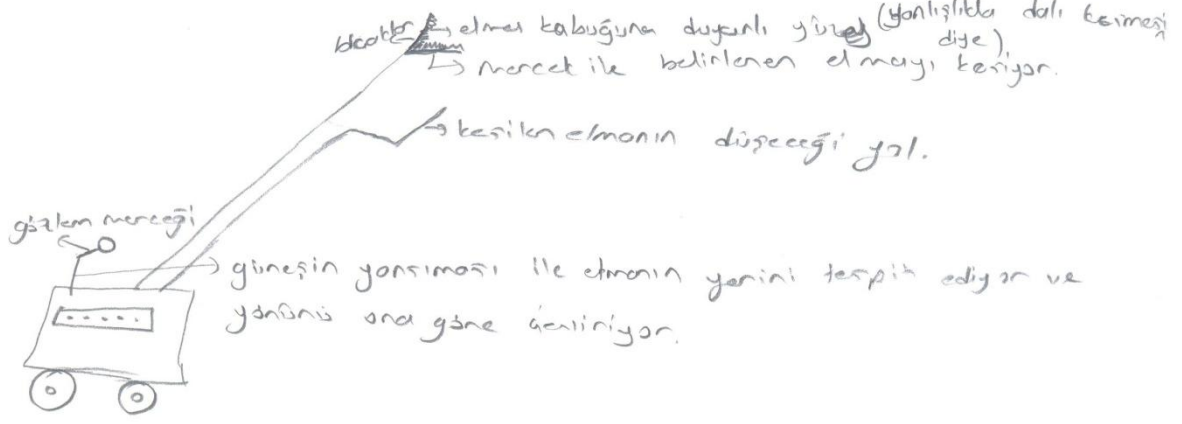 bıcaklar
elma kabuğuna duyarlı yüzey (yanlışlıkla dalı kesmesin
diye).
mercek ile belirlenen elmayı kesiyor.
kesilen elmanın düşeceği yol.
gözlem merceği
güneşin yansıması ile elmanın yerini tespit ediyor ve
yönünü ona göre çeviriyor.